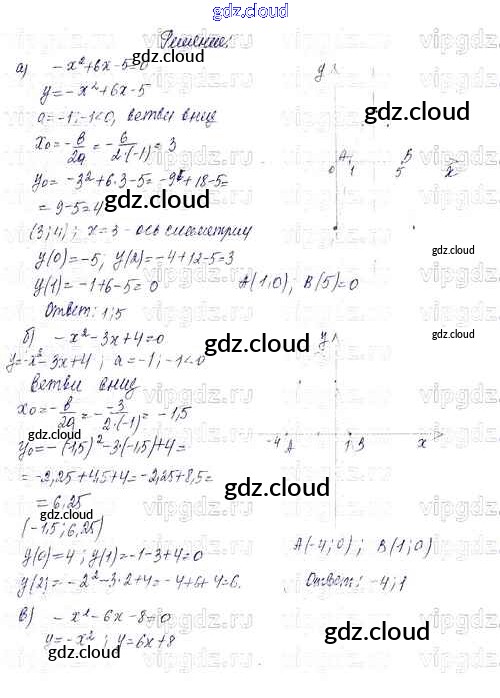 gdz.cloud
Решение:
а) -x²+6x-5=0
y=-x²+6x-5
a=-1; -1<0, ветви вниз
x₀=-в/2a=-6/2·(-1)=3
y₀=-3²+6·3-5=-9+18-5=
=9-5=4
(3;4); x=3-ось симметрии
y(0)=-5; y(2)=-4+12-5=3
y(1)=-1+6-5=0
A(1;0); B(5)=0
Ответ: 1;5
y
A
B
0
1
5
x
б) -x²-3x+4=0
y=-x²-3x+4; a=-1; -1<0
ветви вниз
x₀=-в/2a=--3/2·(-1)=-1,5
y₀=-(-1,5)²-3·(-1,5)+4=
=-2,25+4,5+4=-2,25+8,5=
=6,25
(-1,5; 6,25)
y(0)=4; y(1)=-1-3+4=0
y(2)=-2²-3·2+4=-4+6+4=6.
y
-4
A
1
B
x
A(-4;0); B(1;0)
Ответ: -4;1
в) -x²-6x-8=0
y=-x²; y=6x+8
gdz.cloud
gdz.cloud
gdz.cloud
gdz.cloud
gdz.cloud
gdz.cloud
gdz.cloud
gdz.cloud
gdz.cloud
gdz.cloud